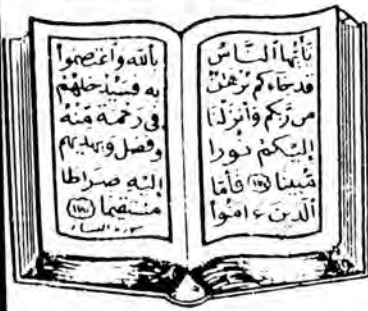 يَٰٓأَيُّهَا ٱلنَّاسُ
قَدْ جَآءَكُم بُرْهَٰنٌ
مِّن رَّبِّكُمْ وَأَنزَلْنَآ
إِلَيْكُمْ نُورًا
مُّبِينًا (١٧٤) فَأَمَّا
ٱلَّذِينَ ءَامَنُوا۟
بِٱللَّهِ وَٱعْتَصَمُوا۟
بِهِۦ فَسَيُدْخِلُهُمْ
فِى رَحْمَةٍ مِّنْهُ
وَفَضْلٍ وَيَهْدِيهِمْ
إِلَيْهِ صِرَٰطًا
مُّسْتَقِيمًا (١٧٥)
سورة النساء